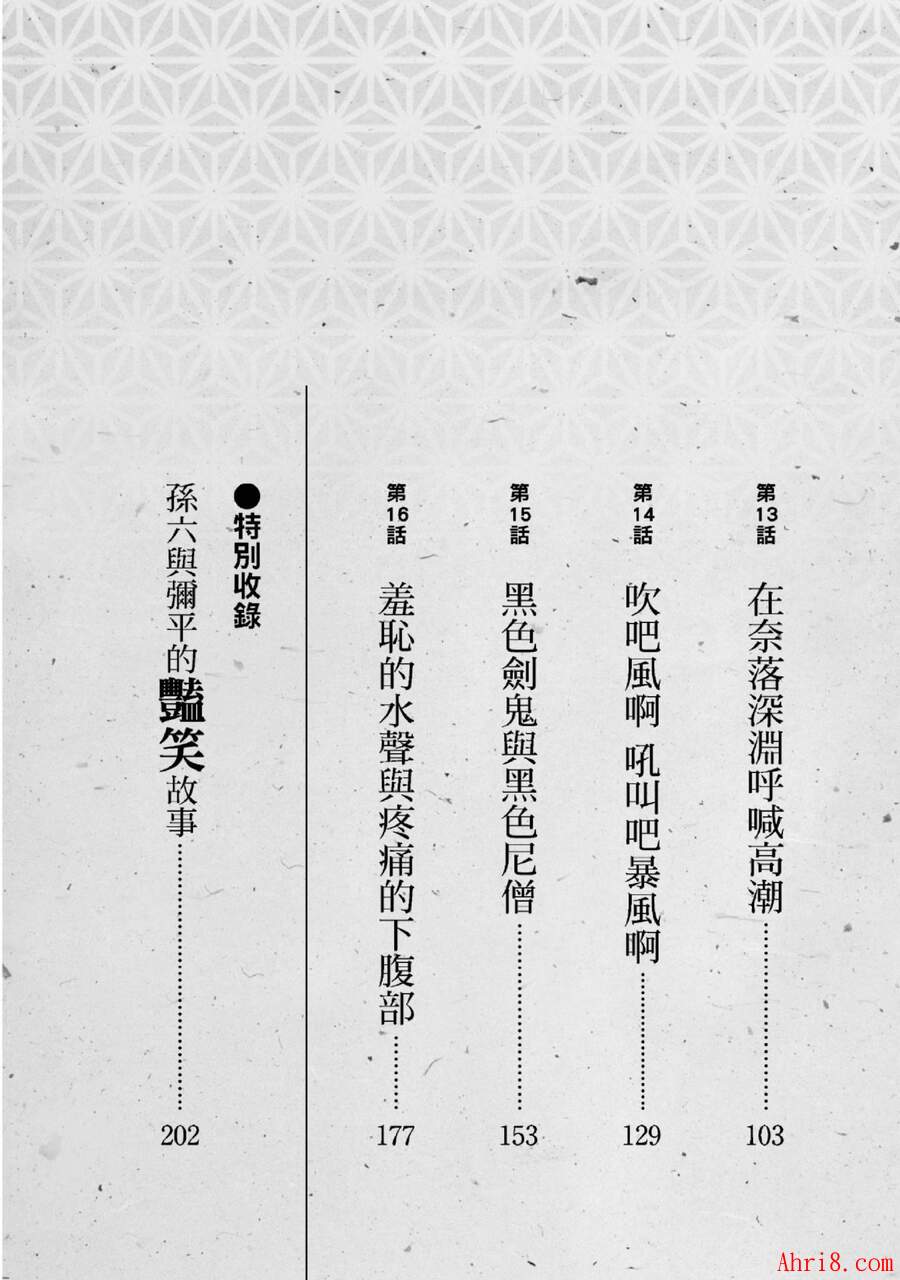 第13話 在奈落深淵呼喊高潮……………103
第14話 吹吧風啊 吼叫吧暴風啊……………129
第15話 黑色劍鬼與黑色尼僧……………153
第16話 羞恥的水聲與疼痛的下腹部………177
●特別收錄
孫六與彌平的豔笑故事……………202
Ahri8.com